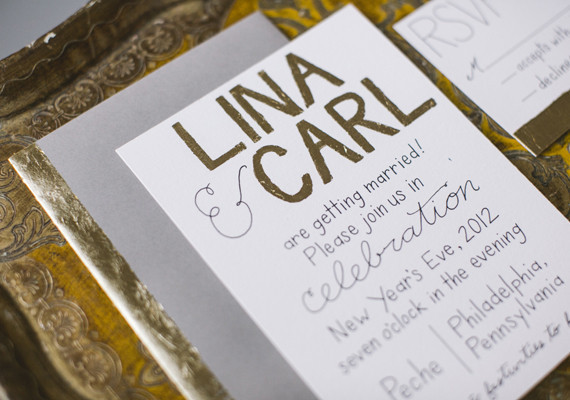 LINA
& CARL
are getting married!
Please join us in
celebration
New Year's Eve, 2012
seven o'clock in the evening
Peche | Philadelphia,
Pennsylvania
festivities to
RSVP
M
accepts with
decline